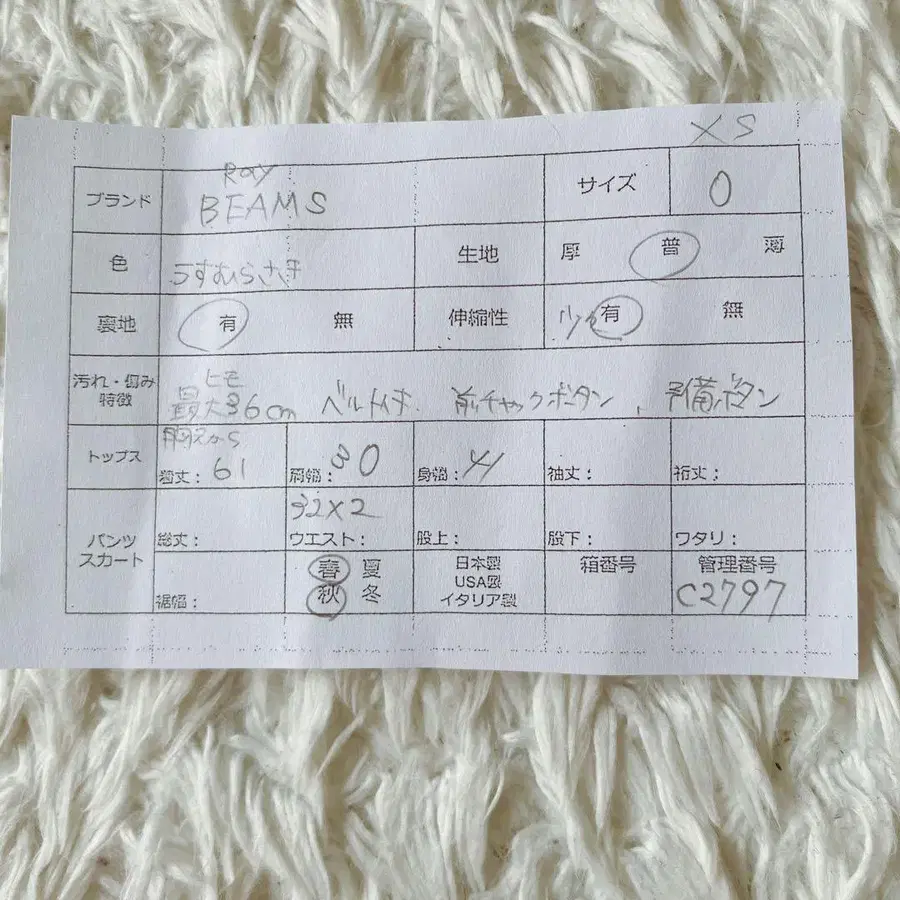 XS
ブランド Ray BEAMS サイズ 0
色 うすむらさき 生地 厚 普 薄
裏地 有 無 伸縮性 少々 有 無
汚れ・傷み 特徴 ヒモ 最大36cm ベルト付 前チャックボタン、予備ボタン
トップス 胸元から 着丈: 61 肩幅: 30 身幅: 41 袖丈: 裄丈:
パンツ スカート 総丈: 32×2 ウエスト: 股上: 股下: ワタリ:
裾幅: 春 夏 秋 冬 日本製 USA製 イタリア製 箱番号 管理番号 C2797